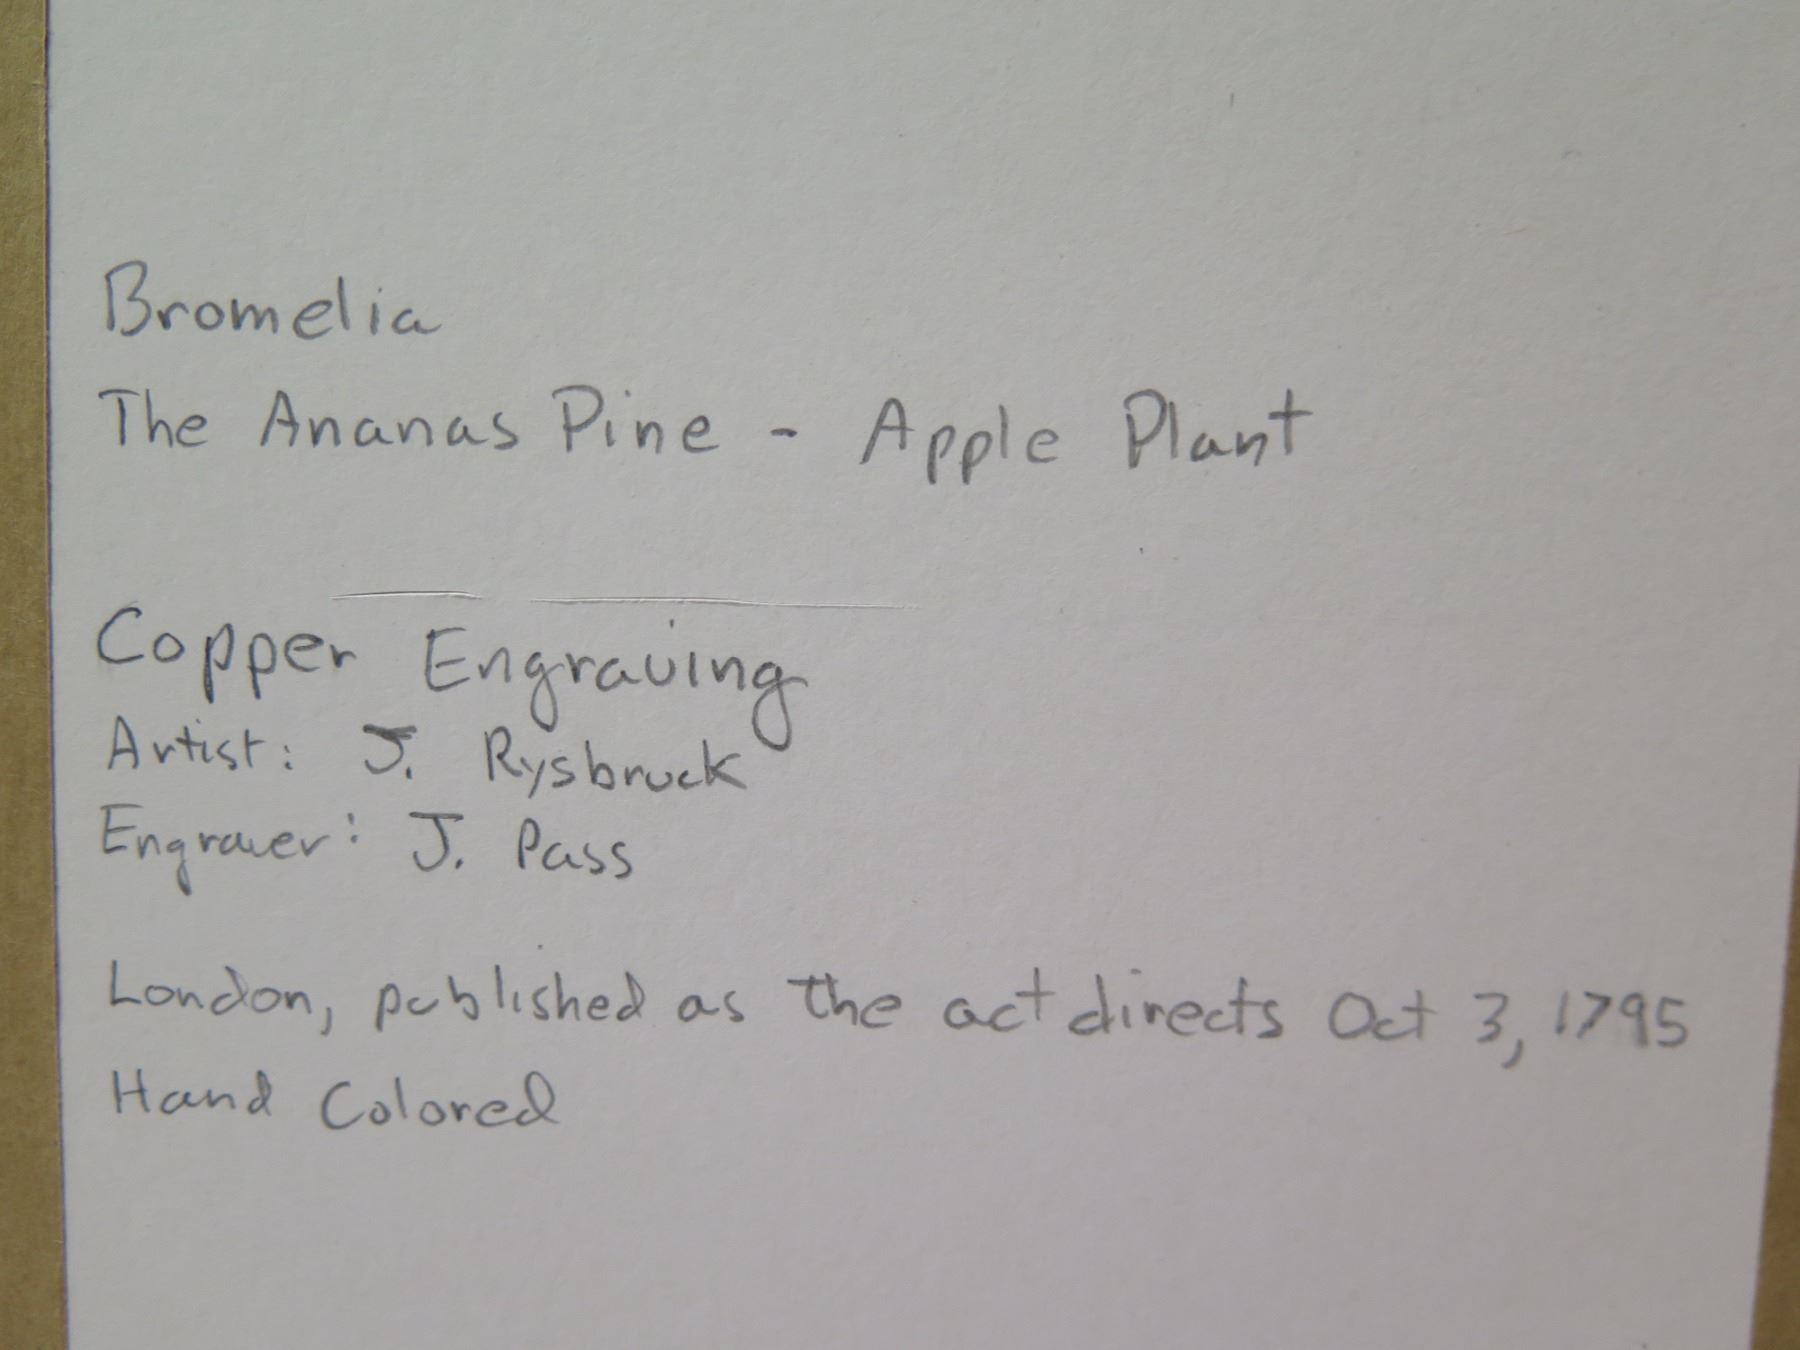 Bromelia
The Ananas Pine - Apple Plant
Copper Engraving
Artist: J. Rysbruck
Engraver: J. Pass
London, published as the act directs Oct 3, 1795
Hand Colored